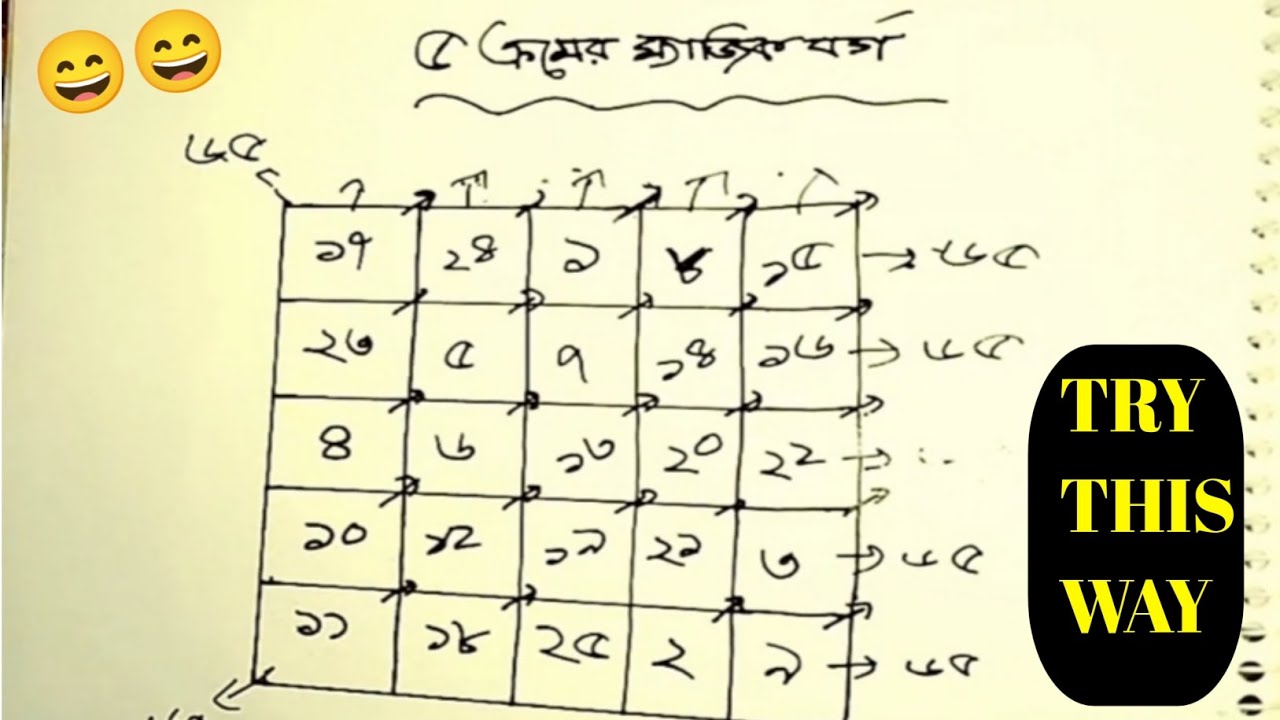 ৫ ক্রমের ম্যাজিক বর্গ
৬৫
১৭ ২৪ ১ ৮ ১৫ → ৬৫
২৩ ৫ ৭ ১৪ ১৬ → ৬৫
৪ ৬ ১৩ ২০ ২২ →
১০ ১২ ১৯ ২১ ৩ → ৬৫
১১ ১৮ ২৫ ২ ৯ → ৬৫
TRY
THIS
WAY